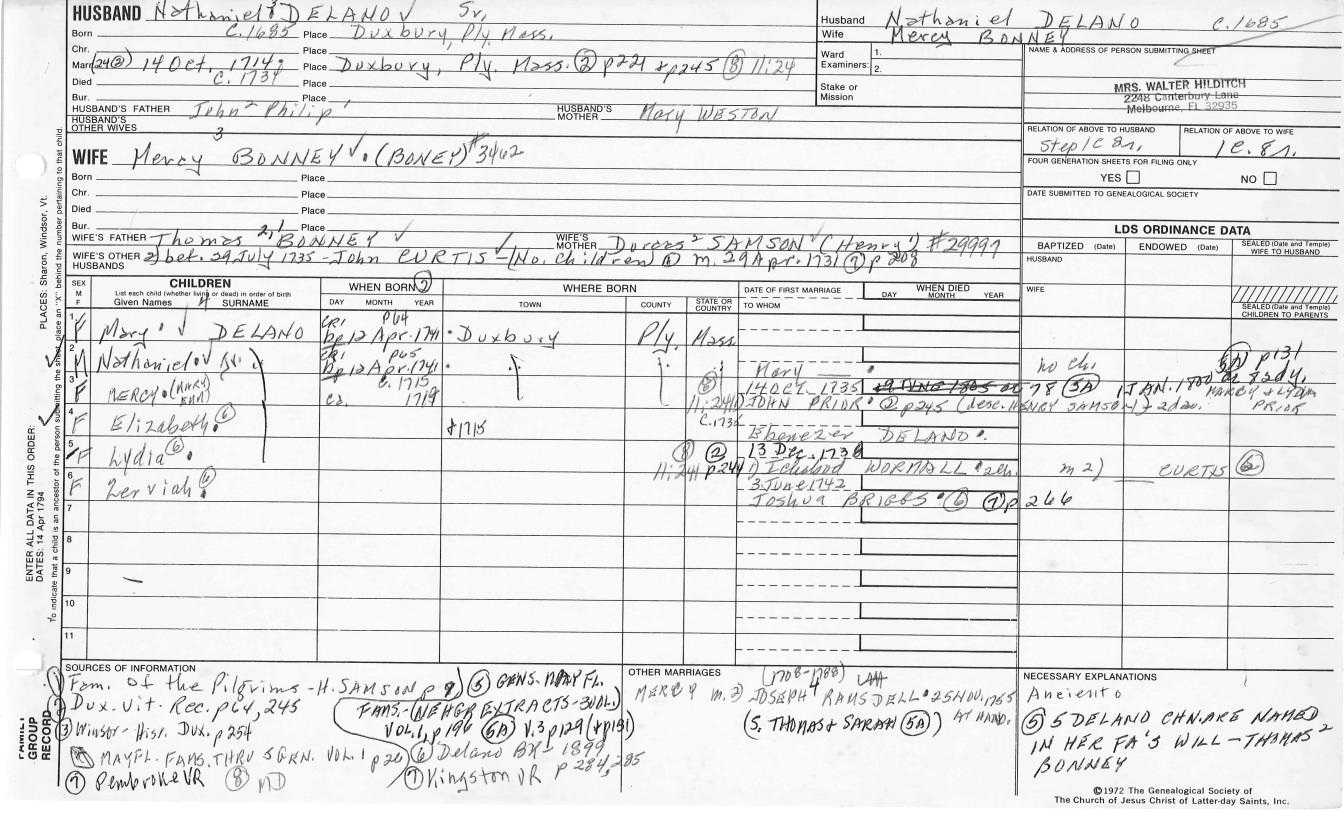 HUSBAND Nathaniel 3 DELANO Sr,
Born C. 1685 Place Duxbury, Ply. Mass.
Chr. Place
Marr. (24②) 14 Oct. 1714 Place Duxbury, Ply. Mass. ② p221 & p245 ⑧ 11:24
Died C. 1734 Place
Bur. Place
HUSBAND'S FATHER John 2 Philip 1 HUSBAND'S MOTHER Mary WESTON
HUSBAND'S OTHER WIVES
Husband Nathaniel DELANO C. 1685
Wife Mercy BONNEY
Ward Examiners: 1.
2.
Stake or Mission
NAME & ADDRESS OF PERSON SUBMITTING SHEET
MRS. WALTER HILDITCH
2248 Canterbury Lane
Melbourne, FL 32935
RELATION OF ABOVE TO HUSBAND Step 1C 8r.
RELATION OF ABOVE TO WIFE 1C. 8r.
FOUR GENERATION SHEETS FOR FILING ONLY
YES NO
DATE SUBMITTED TO GENEALOGICAL SOCIETY
WIFE Mercy 3 BONNEY (BONEY) #3462
Born Place
Chr. Place
Died Place
Bur. Place
WIFE'S FATHER Thomas 2,1 BONNEY WIFE'S MOTHER Dorcas 2 SAMSON (Henry 1) #29997
WIFE'S OTHER HUSBANDS 2) bet. 29 July 1735 - John CURTIS - (No. Children) ① m. 29 Apr. 1731 ⑦ p 208
LDS ORDINANCE DATA
BAPTIZED (Date) ENDOWED (Date) SEALED (Date and Temple) WIFE TO HUSBAND
HUSBAND
WIFE
SEALED (Date and Temple) CHILDREN TO PARENTS
SEX M F
CHILDREN
List each child (whether living or dead) in order of birth
Given Names 4 SURNAME
WHEN BORN ②
DAY MONTH YEAR
WHERE BORN
TOWN COUNTY STATE OR COUNTRY
DATE OF FIRST MARRIAGE
TO WHOM
WHEN DIED
DAY MONTH YEAR
1 F Mary DELANO CR1 p64 bp 12 Apr. 1741 Duxbury Ply. Mass.
2 M Nathaniel Jr. CR1 p65 bp 12 Apr. 1741 Mary no ch. 5A p131
3 F MERCY (MARY ANN) C. 1715 ca. 1719 ⑧ 11:241 14 OCT. 1735 78 5A 1 JAN. 1800 82dy.
JOHN PRIOR ② p245 (desc. HENRY SAMSON) + 2 dau: MERCY & LYDIA PRIOR
4 F Elizabeth ⑥ 1715 Ebenezer DELANO
5 F Lydia ⑥ ⑧ 11:241 ② p244 13 Dec. 1738
1) Ichabod WORMALL 2ch. m 2) CURTIS ⑥
6 F Zerviah ⑥ 3 June 1742
Joshua BRIGGS ⑥ ⑦ p 266
7
8
9
10
11
SOURCES OF INFORMATION
① Fam. of the Pilgrims - H. SAMSON p 9
② Dux. Vit. Rec. p64, 245
③ Winsor - Hist. Dux. p 254
MAYFL. FAMS. THRU 5 GEN. VOL. 1 p 20
⑦ Pembroke VR ⑧ MD
⑤ GENS. MAYFL. FAMS. - (NEHGR EXTRACTS - 3 VOL.)
VOL. 1, p 196 5A V. 3 p 129 (& p131)
⑥ Delano BK - 1899
⑦ Kingston VR p 284, 285
OTHER MARRIAGES
(1708-1788)
MERCY m. 2) JOSEPH 4 RAMSDELL 25 NOV. 1755
(S. THOMAS & SARAH 5A) AT HAND.
NECESSARY EXPLANATIONS
⑤ 5 DELANO CHN. ARE NAMED
IN HER FA'S WILL - THOMAS 2
BONNEY
©1972 The Genealogical Society of
The Church of Jesus Christ of Latter-day Saints, Inc.
PLACES: Sharon, Windsor, Vt.
ENTER ALL DATA IN THIS ORDER:
DATES: 14 Apr 1794
To indicate that a child is an ancestor of the person submitting the sheet, place an "X" behind the number pertaining to that child.
FAMILY GROUP RECORD